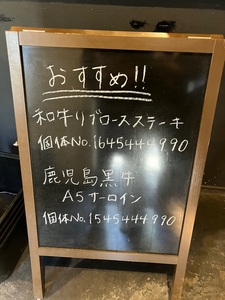 おすすめ!!
和牛リブロースステーキ
個体No.1645444990
鹿児島黒牛
A5サーロイン
個体No.1545444990